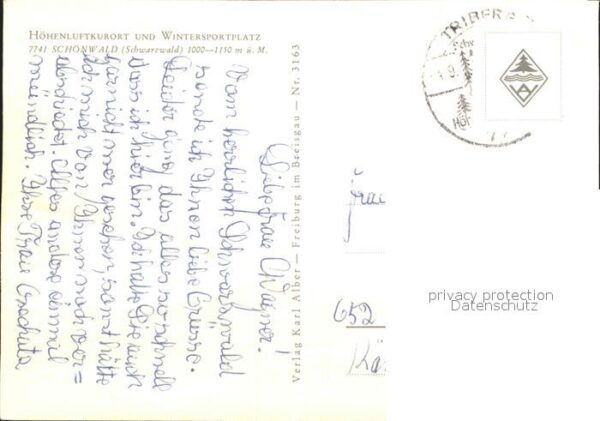 HÖHENLUFTKURORT UND WINTERSPORTPLATZ
7741 SCHÖNWALD (Schwarzwald) 1000—1150 m ü. M.
Liebe Frau Wagner!
Vom herrlichen Schwarzwald
sende ich Ihnen liebe Grüsse.
Leider ging das alles so schnell
dass ich hier bin. Ich hatte Sie auch
garnicht mehr gesehen, sonst hätte
ich mich von Ihnen auch ver=
abschiedet. Alles andere einmal
mündlich. Ihre Frau
Verlag Karl Alber — Freiburg im Breisgau — Nr. 3163
TRIBERG
Frau
652
Kä
privacy protection
Datenschutz